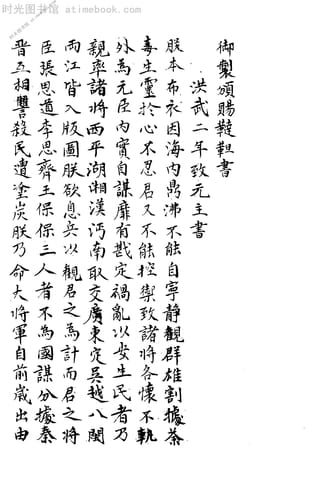 时光图书馆 atimebook.com
御製頒賜韃靼書
洪武二年致元主書
朕本布衣因海内鼎沸不能自寧靜觀群雄割據荼
毒生靈於心不忍君又不能控禦致諸將各懷不軌
外為元臣内實自謀靡有戡定禍亂以安生民者乃
親率諸將西平湖湘漢沔南取交廣東定吳越八閩
兩江皆入版圖朕欲息兵以觀君之為計而君之將
臣張思道李思齊王保保三人者不為國謀分據秦
晉互相讐殺民遭塗炭朕乃命大將軍自前歲出由